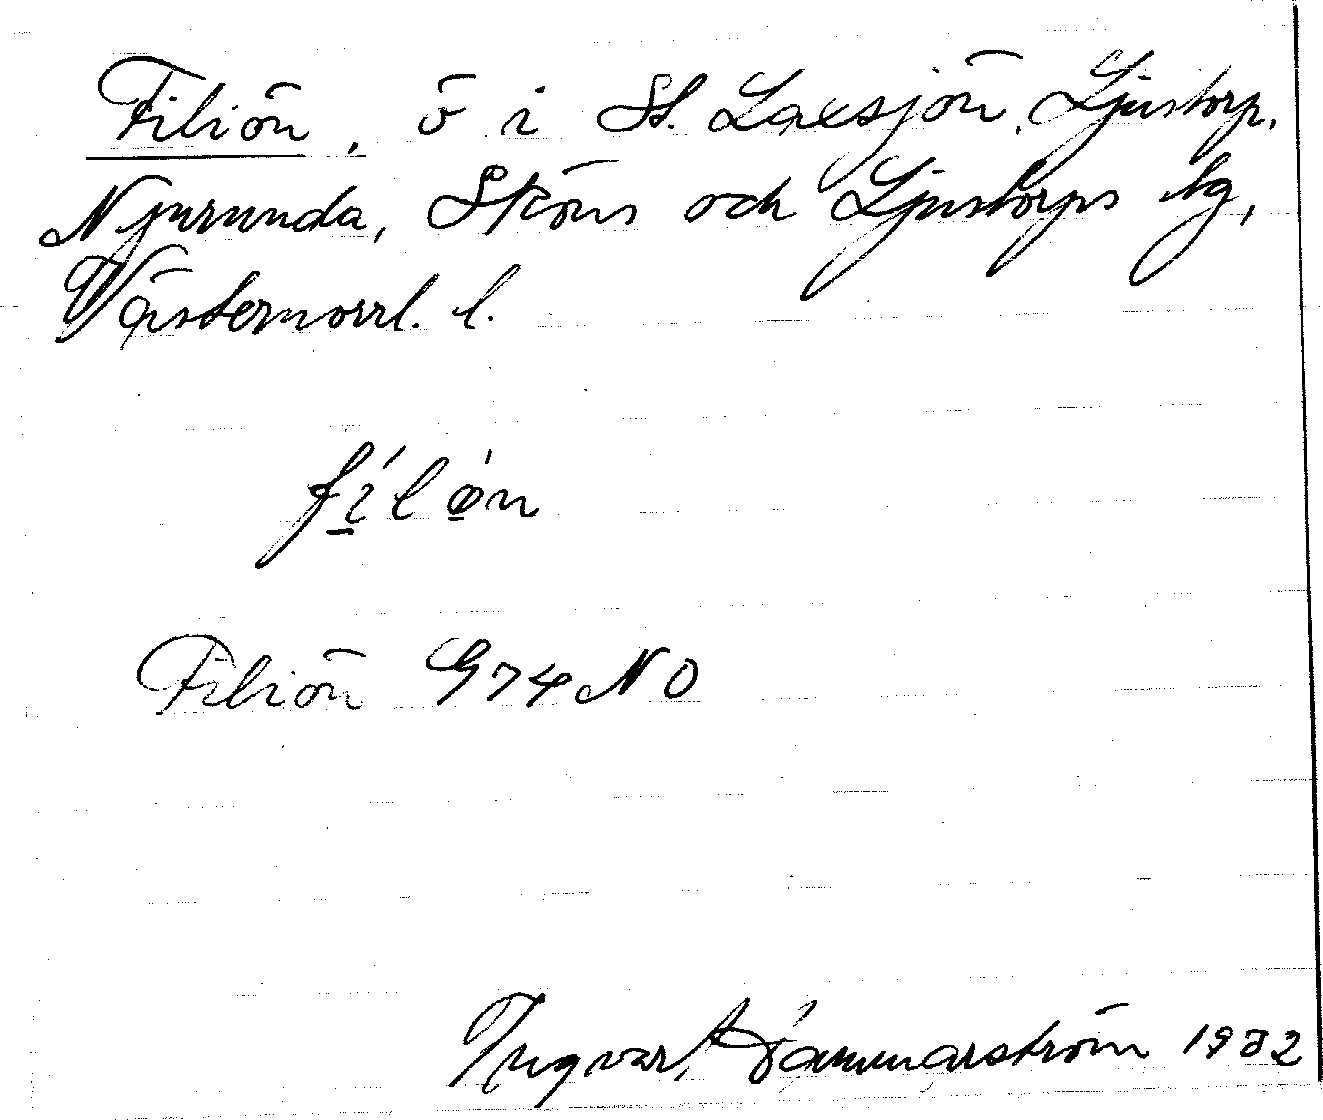 Filiön, ö i St. Laxsjön, Ljustorp,
Njurunda, Sköns och Ljustorps tg,
Västernorrl. l.
fílön
Filiön G74 NO
Ingvar Hammarström 1932